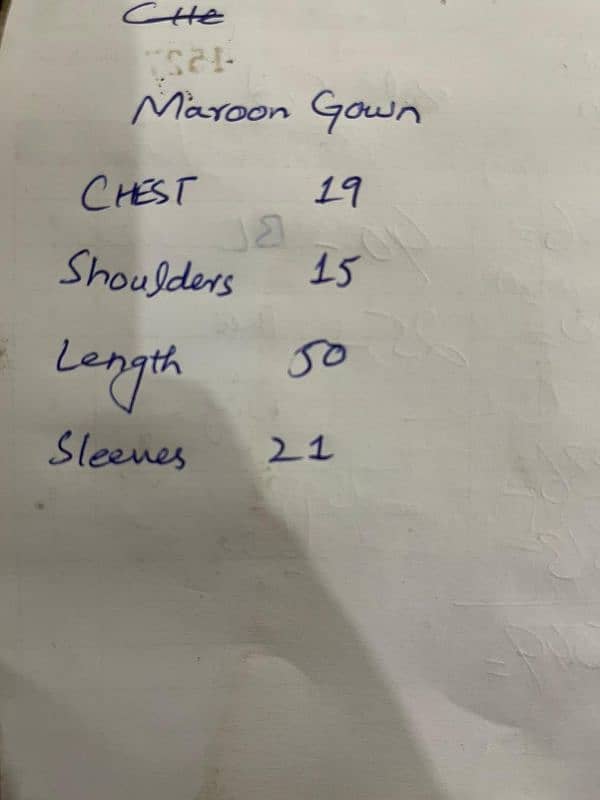 Maroon Gown
CHEST 19
Shoulders 15
Length 50
Sleeves 21